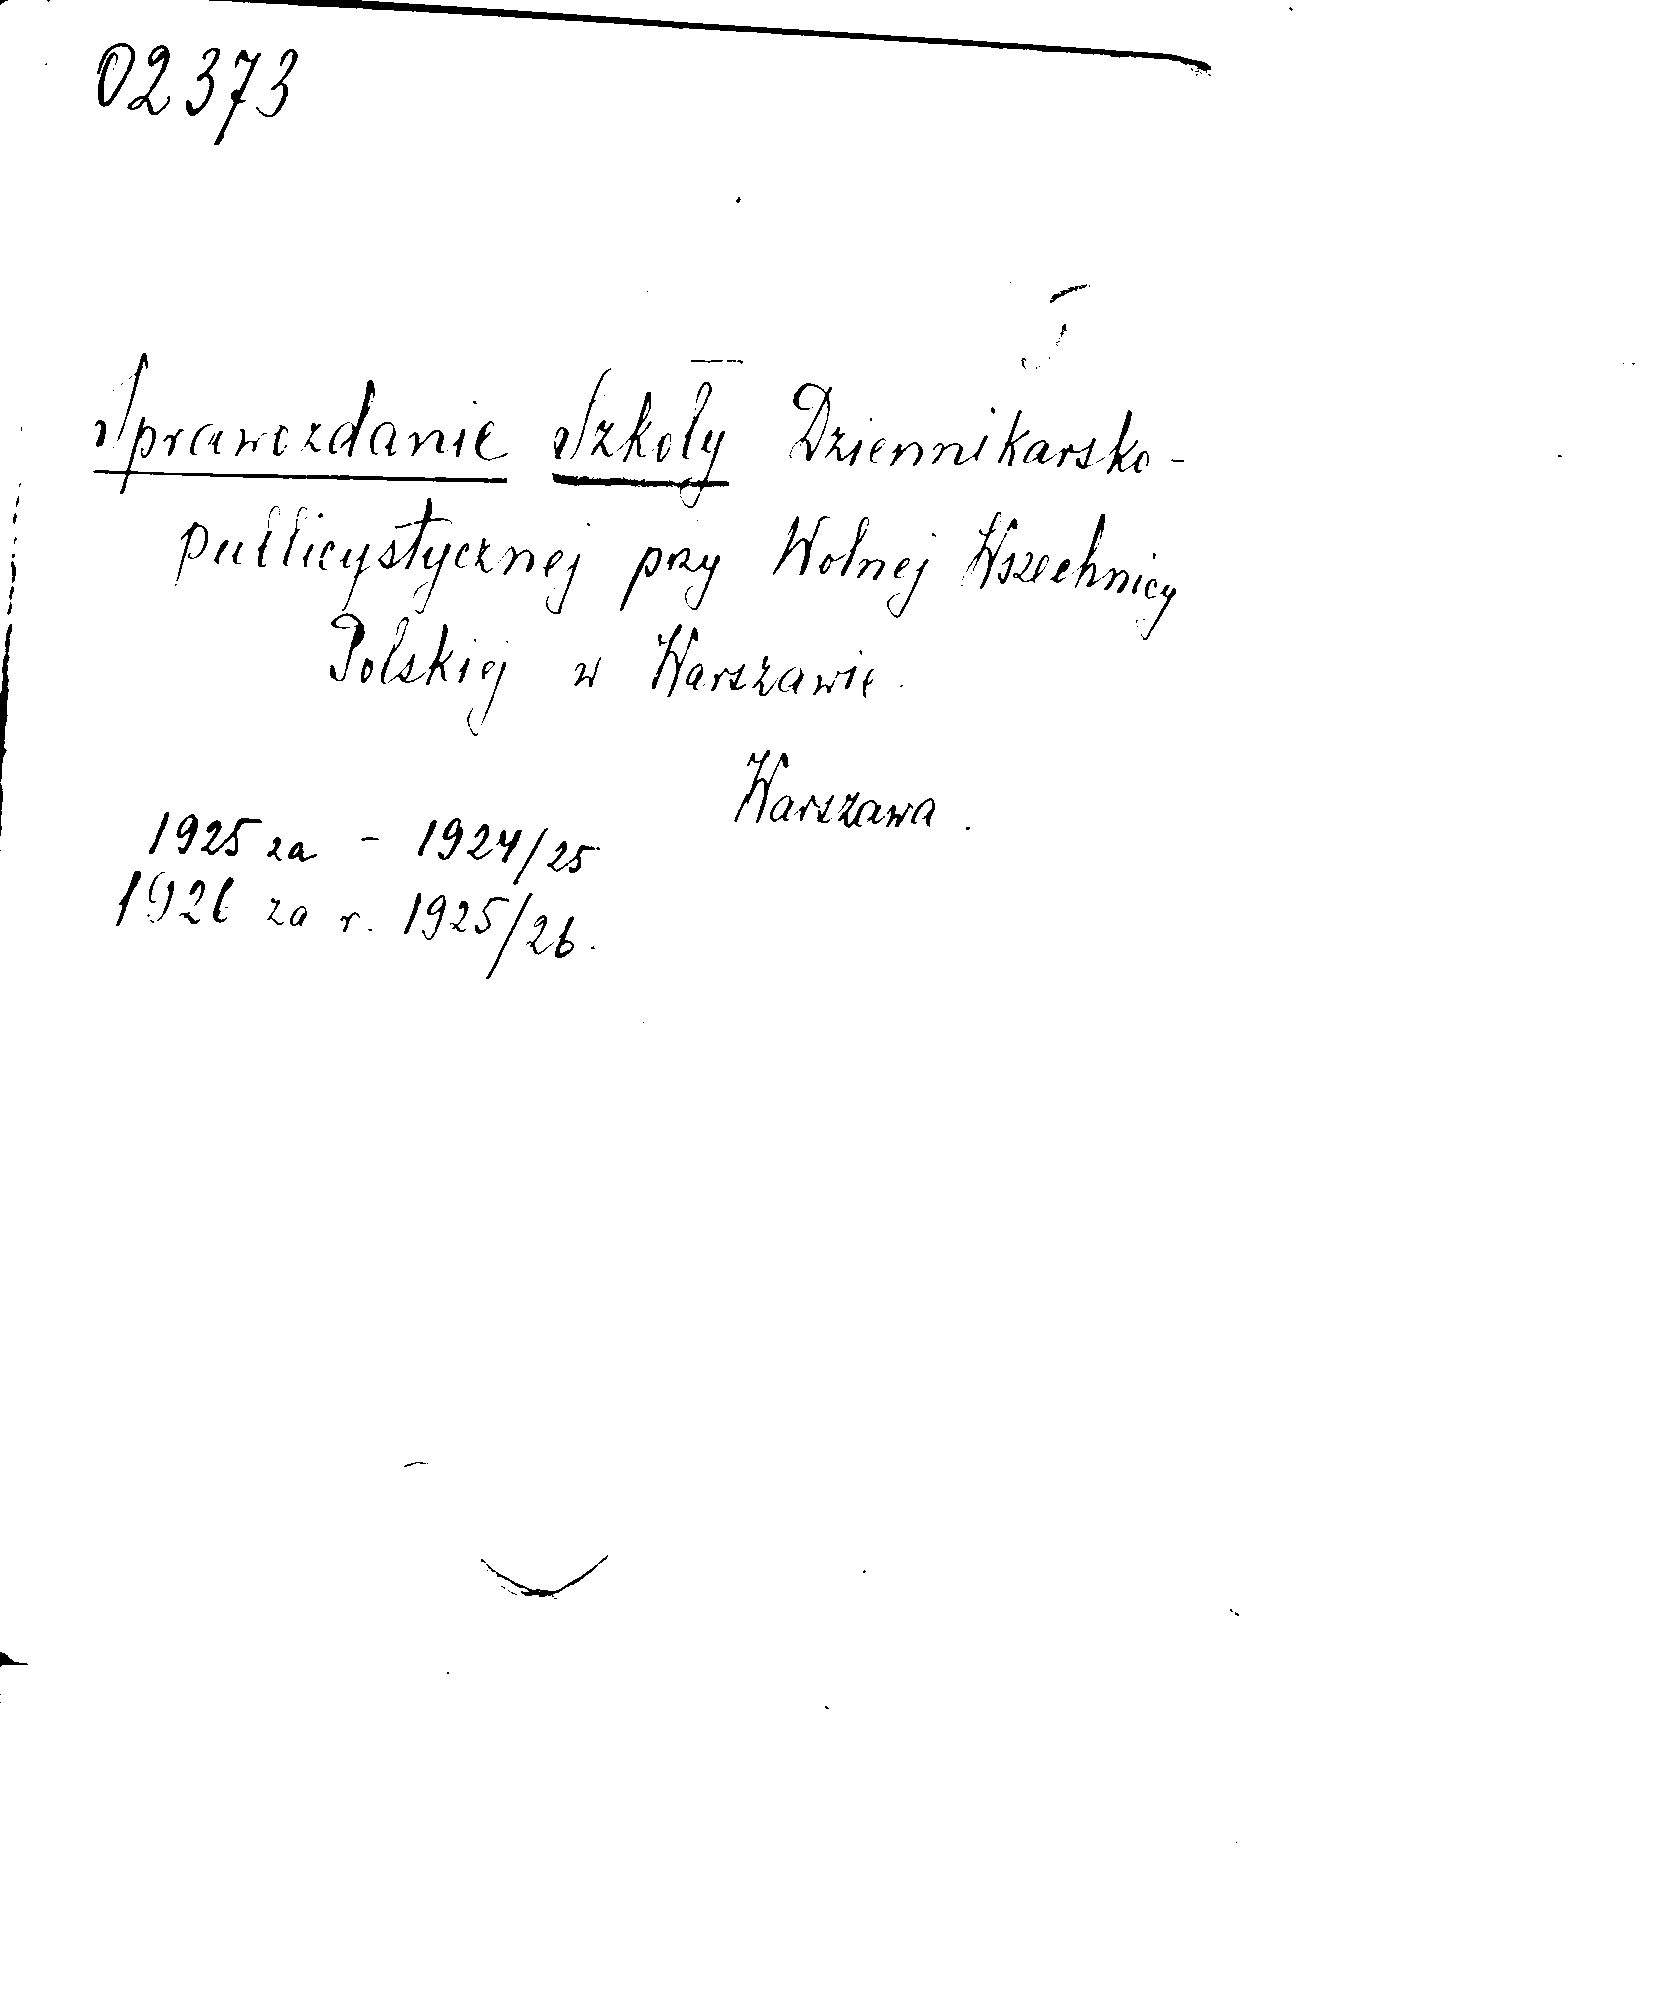 02373
Sprawozdanie Szkoły Dziennikarsko-
publicystycznej przy Wolnej Wszechnicy
Polskiej w Warszawie.
Warszawa.
1925 za - 1924/25
1926 za r. 1925/26.